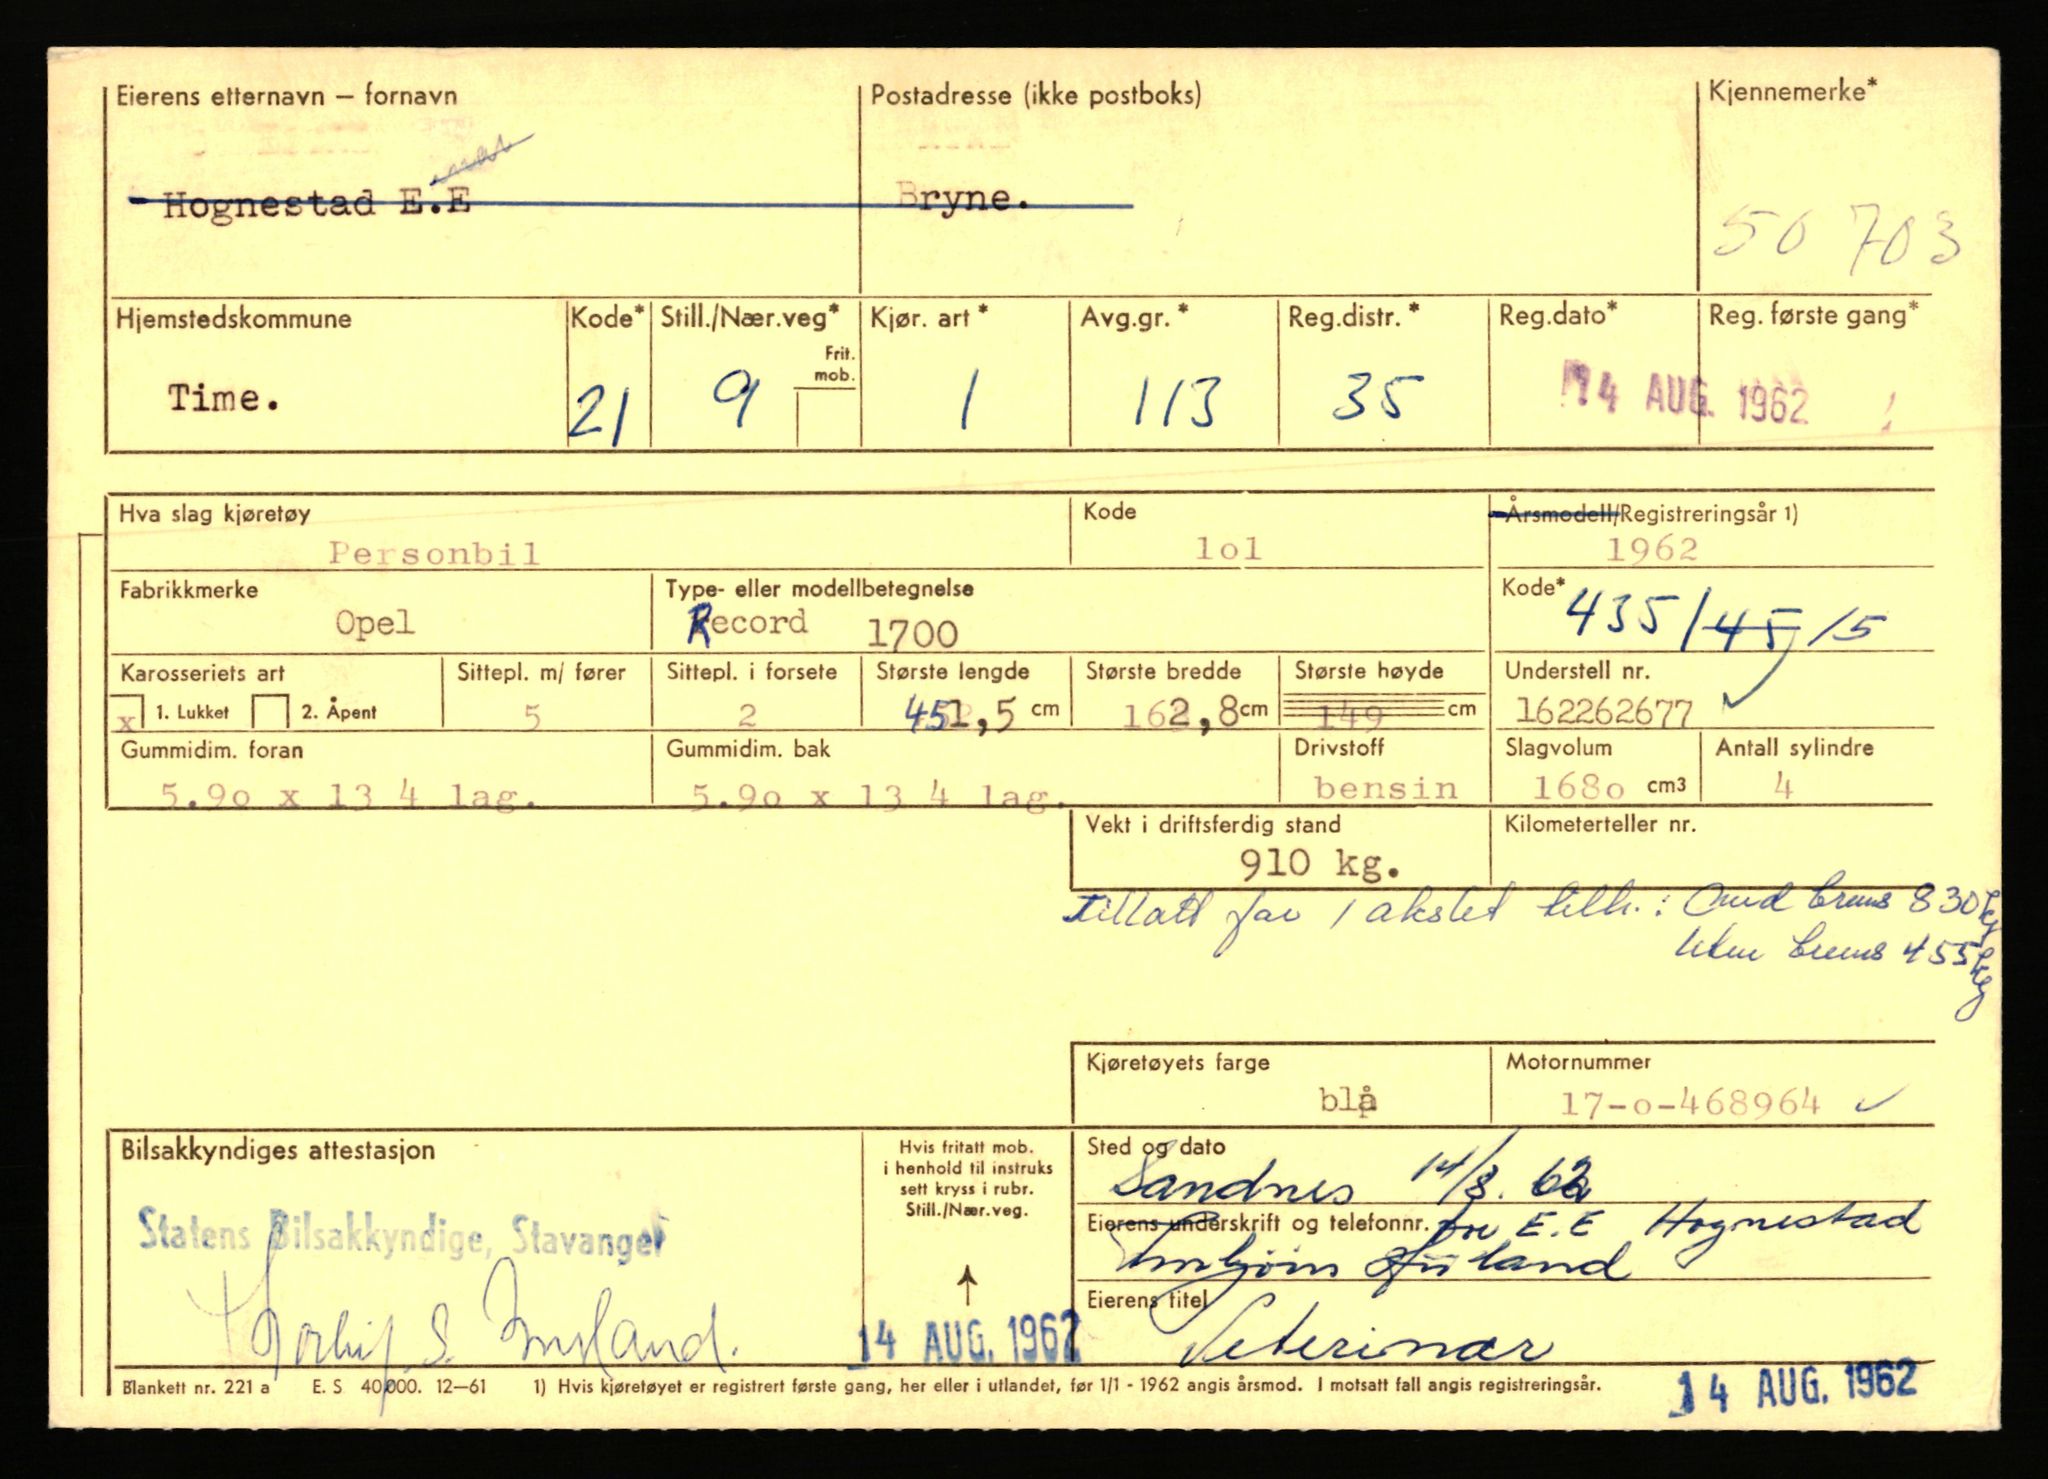 Eierens etternavn – fornavn Postadresse (ikke postboks) Kjennemerke*
Hognestad E.E Bryne.
50 703
Hjemstedskommune Kode* Still./Nær.veg* Kjør. art * Avg.gr. * Reg.distr. * Reg.dato* Reg. første gang*
Frit.
mob.
Time. 21 9 1 113 35 14 AUG. 1962
Hva slag kjøretøy Kode Årsmodell/Registreringsår 1)
Personbil 1o1 1962
Fabrikkmerke Type- eller modellbetegnelse Kode*
Opel Record 1700 435/45/5
Karosseriets art Sittepl. m/ fører Sittepl. i forsete Største lengde Største bredde Største høyde Understell nr.
x 1. Lukket 2. Åpent 5 2 451,5 cm 162,8 cm 149 cm 162262677
Gummidim. foran Gummidim. bak Drivstoff Slagvolum Antall sylindre
5.9o x 13 4 lag. 5.9o x 13 4 lag. bensin 168o cm3 4
Vekt i driftsferdig stand Kilometerteller nr.
910 kg.
Tillatt for 1 akslet tilh.: Med brems 830 kg
Uten brems 455 kg
Kjøretøyets farge Motornummer
blå 17-o-468964
Bilsakkyndiges attestasjon Hvis fritatt mob. Sted og dato
i henhold til instruks
sett kryss i rubr.
Still./Nær.veg.
Sandnes 14/8. 62
Statens Bilsakkyndige, Stavanger
Eierens underskrift og telefonnr. for E.E Hognestad
Eierens titel
S. 14 AUG. 1962 Veterinær
Blankett nr. 221 a E. S 40,000. 12–61 1) Hvis kjøretøyet er registrert første gang, her eller i utlandet, før 1/1 - 1962 angis årsmod. I motsatt fall angis registreringsår.
14 AUG. 1962